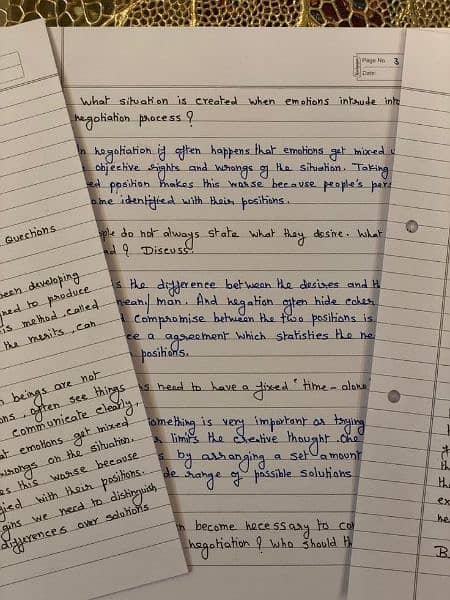 Page No. 3
Date:
What situation is created when emotions intrude into
negotiation process ?
negotiation it often happens that emotions get mixed
objective rights and wrongs of the situation. Taking
position makes this worse because people's
identified with their positions.
do not always state what they desire. What
? Discuss.
the difference between the desires and
man. And negation often hide
compromise between the two positions is
a agreement which statisties the
positions.
need to have a fixed "time-alone
something is very important as trying
limits the creative thought. One
by arranging a set amount
range of possible solutions
become necessary to
negotiation ? Who should
Questions
been developing
to produce
is method, called
the merits, can
beings are not
often see things
communicate clearly,
emotions get mixed
wrongs on the situation.
this worse because
with their positions.
we need to distinguish
differences over solutions
B